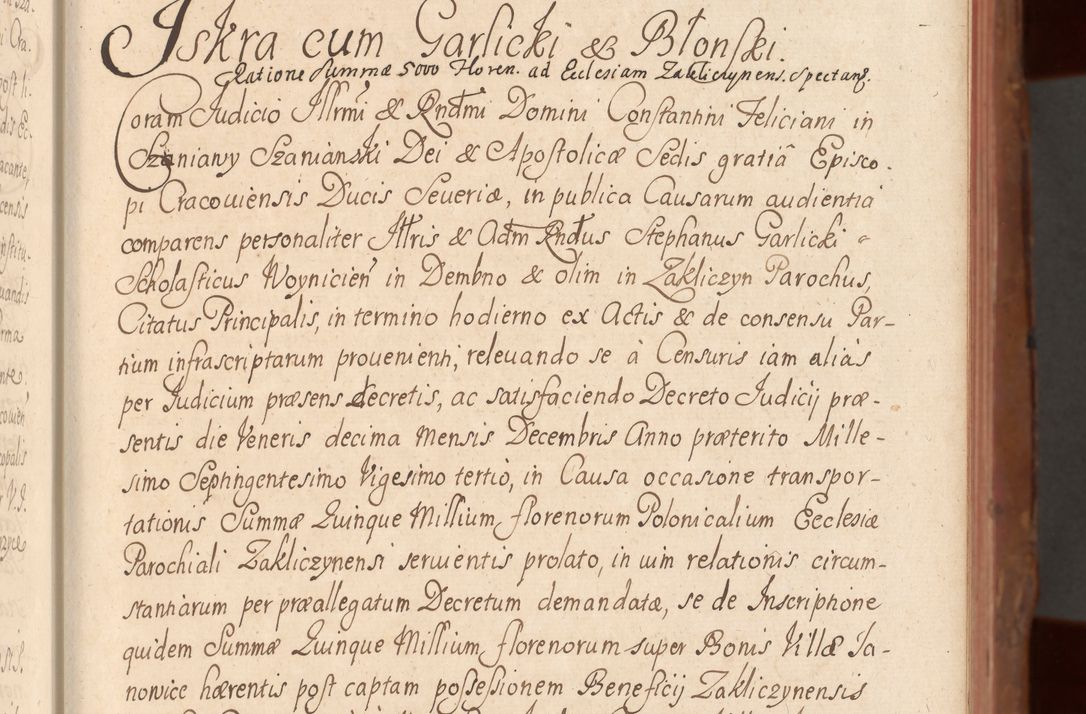 Iskra cum Garlicki & Błonski.
Ratione Summæ 5000 Floren. ad Ecclesiam Zakliczynens. spectan.
Coram Judicio Illrmi & Rndmi Domini Constantini Feliciani in
Szaniawy Szaniawski Dei & Apostolicæ Sedis gratiâ Episco-
pi Cracoviensis Ducis Severiæ, in publica Causarum audientia
comparens personaliter Illris & Adm Rndus Stephanus Garlicki
Scholasticus Woynicien in Dembno & olim in Zakliczyn Parochus,
Citatus Principalis, in termino hodierno ex Actis & de consensu Par-
tium infrascriptarum provenienti, relevando se à Censuris iam aliàs
per Judicium præsens decretis, ac satisfaciendo Decreto Judicij præ-
sentis die Veneris decima Mensis Decembris Anno præterito Mille-
simo Septingentesimo Vigesimo tertiò, in Causa occasione transpor-
tationis Summæ Quinque Millium florenorum Polonicalium Ecclesiæ
Parochiali Zakliczynensi servientis prolato, in vim relationis circum-
stantiarum per præallegatum Decretum demandatæ, se de Inscriptione
quidem Summæ Quinque Millium florenorum super Bonis Villæ Ja-
nowice hærentis post captam possessionem Beneficij Zakliczynensis